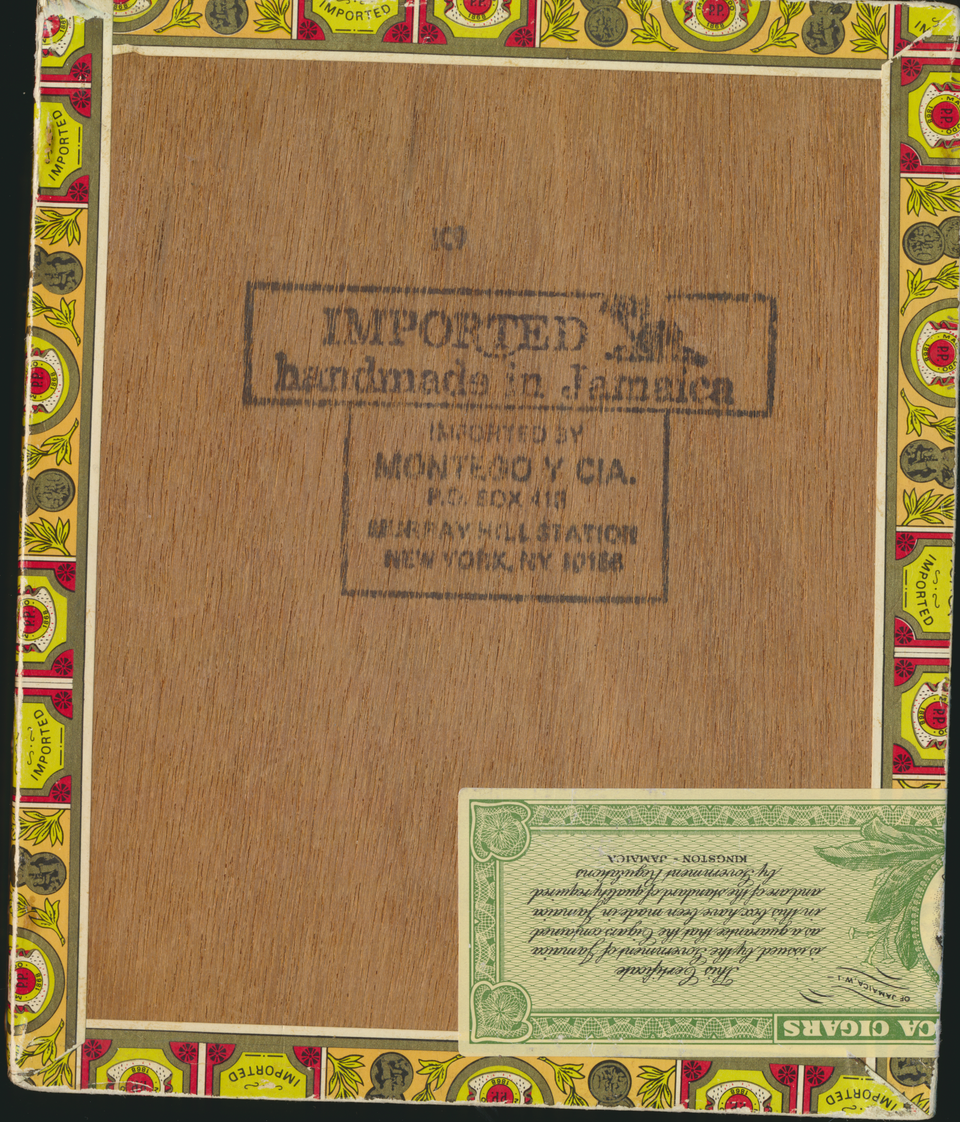 IMPORTED
handmade in Jamaica
IMPORTED BY
MONTEGO Y CIA.
P.O. BOX
MURRAY HILL STATION
NEW YORK, NY
CA CIGARS
OF JAMAICA, W. I.
This Certificate
is issued by the Government of Jamaica
as a guarantee that the Cigars contained
in this box have been made in Jamaica
and are of the standard of quality required
by Government Regulations
KINGSTON - JAMAICA
IMPORTED
IMPORTED
IMPORTED
IMPORTED
IMPORTED
IMPORTED